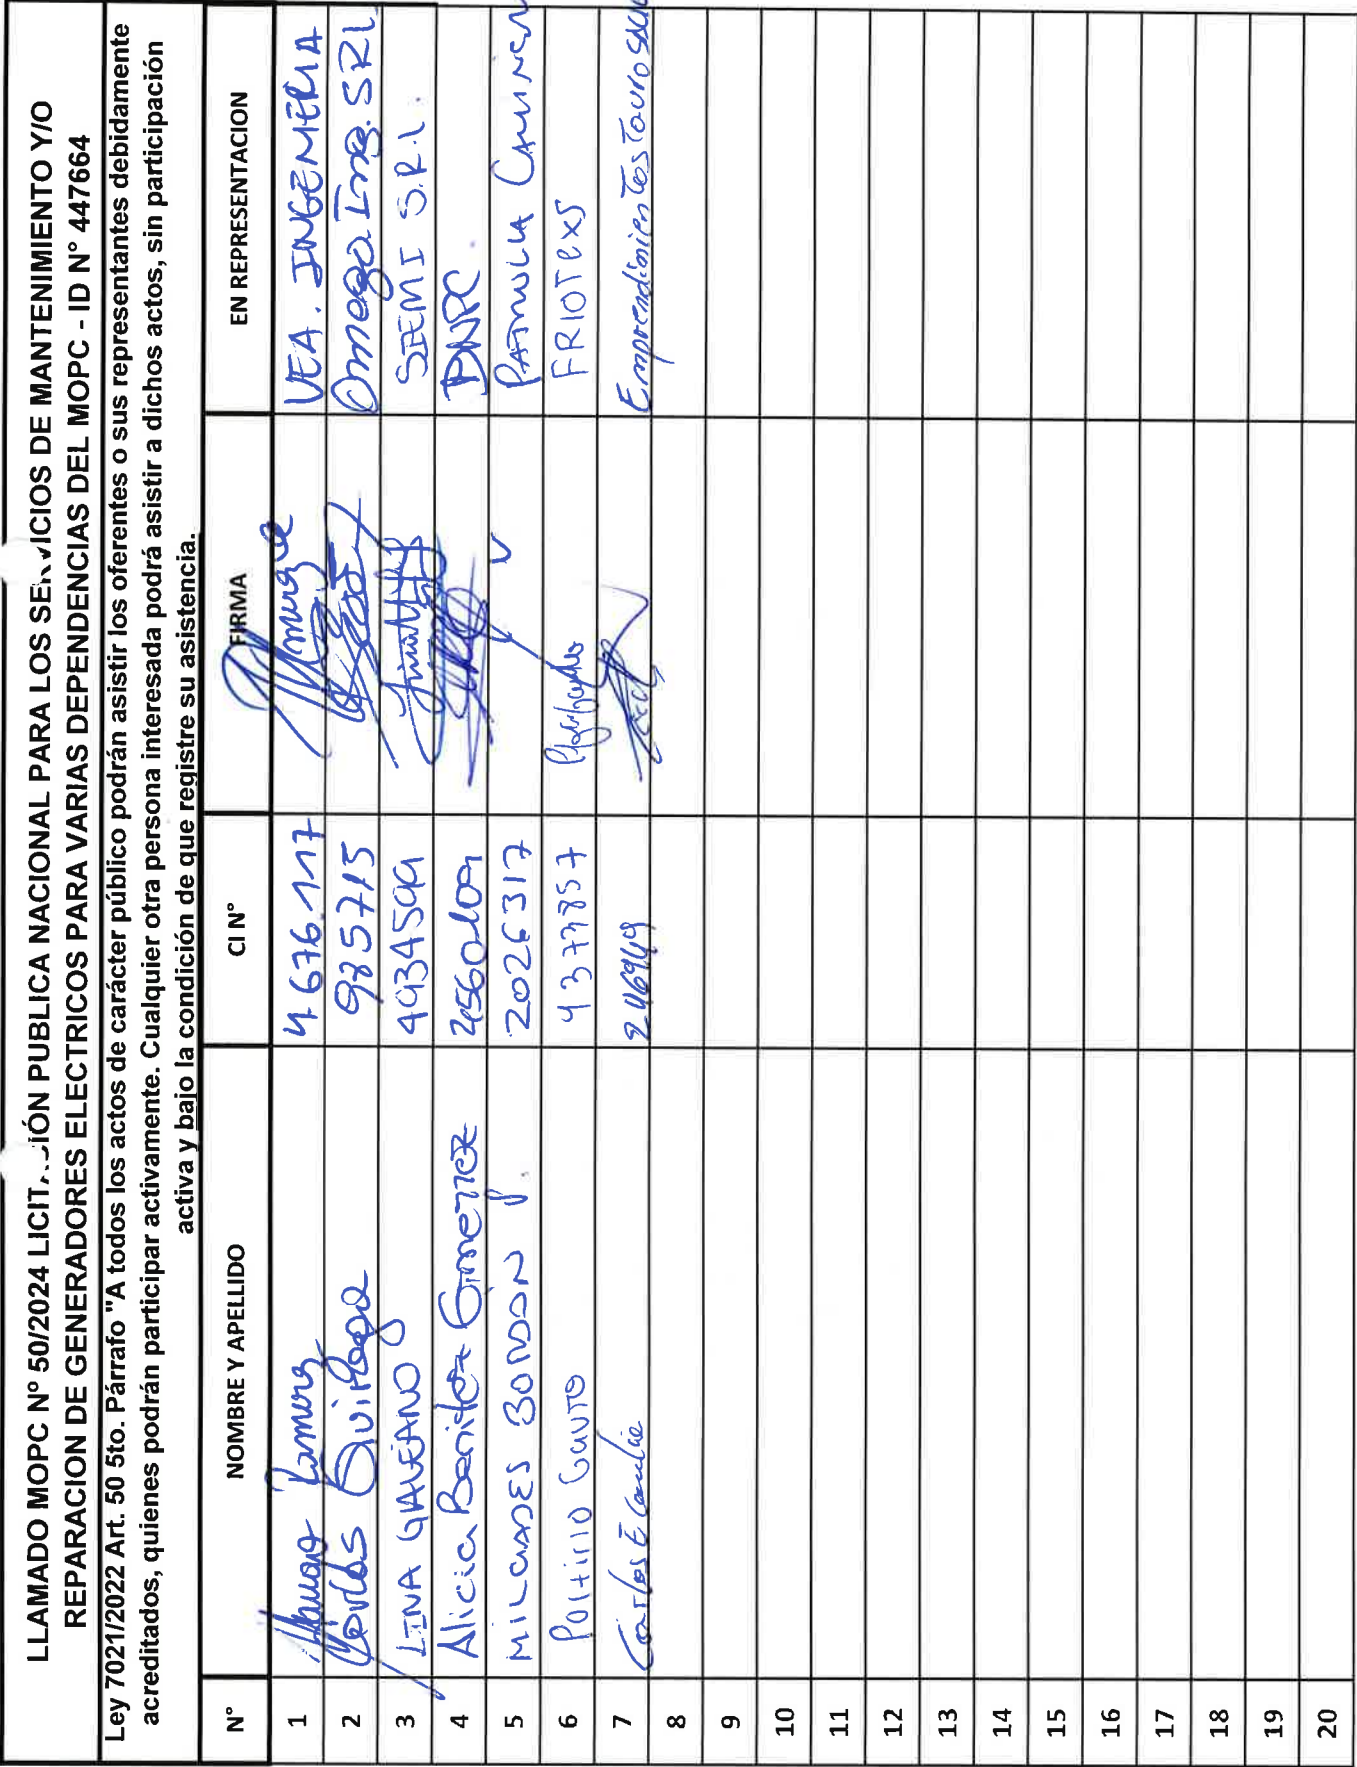 LLAMADO MOPC Nº 50/2024 LICIT SIÓN PUBLICA NACIONAL PARA LOS SERVICIOS DE MANTENIMIENTO Y/O
REPARACION DE GENERADORES ELECTRICOS PARA VARIAS DEPENDENCIAS DEL MOPC - ID N° 447664
Ley 7021/2022 Art. 50 5to. Párrafo "A todos los actos de carácter público podrán asistir los oferentes o sus representantes debidamente
acreditados, quienes podrán participar activamente. Cualquier otra persona interesada podrá asistir a dichos actos, sin participación
activa y bajo la condición de que registre su asistencia.
N° NOMBRE Y APELLIDO CI N° FIRMA EN REPRESENTACION
1 4.676.117 VEA. INGENIERIA
2 Carlos Quiroga 985715 Omega Ing. SRL
3 LINA GALEANO 4934599 SIEMI S.R.L.
4 Alicia Benitez 2560109 DNPC
5 MILCIADES BORDON 2026317 PATRULLA CAMINER
6 Porfirio Gauto 4377857 FRIOTEXS
7 Carlos E 246949 Emprendimientos Tauro
8
9
10
11
12
13
14
15
16
17
18
19
20